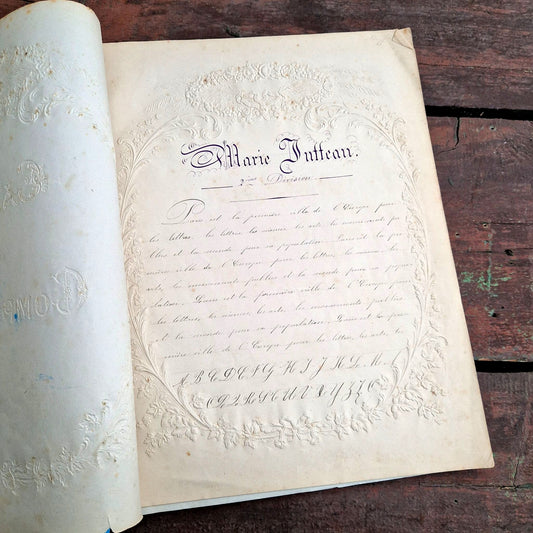 Marie Jutteau.
2ème Division
Paris est la première ville de l'Europe pour
les lettres, les sciences, les arts, les monuments pu
blics et la seconde pour sa population. Paris est la pre
mière ville de l'Europe pour les lettres, les sciences, les
arts, les monuments publics et la seconde pour sa popu
lation. Paris est la première ville de l'Europe pour
les lettres, les sciences, les arts, les monuments publics
et la seconde pour sa population. Paris est la pre
mière ville de l'Europe pour les lettres, les arts, les
A B C D E F G H I J K L M
O P Q R S T U V X Y Z